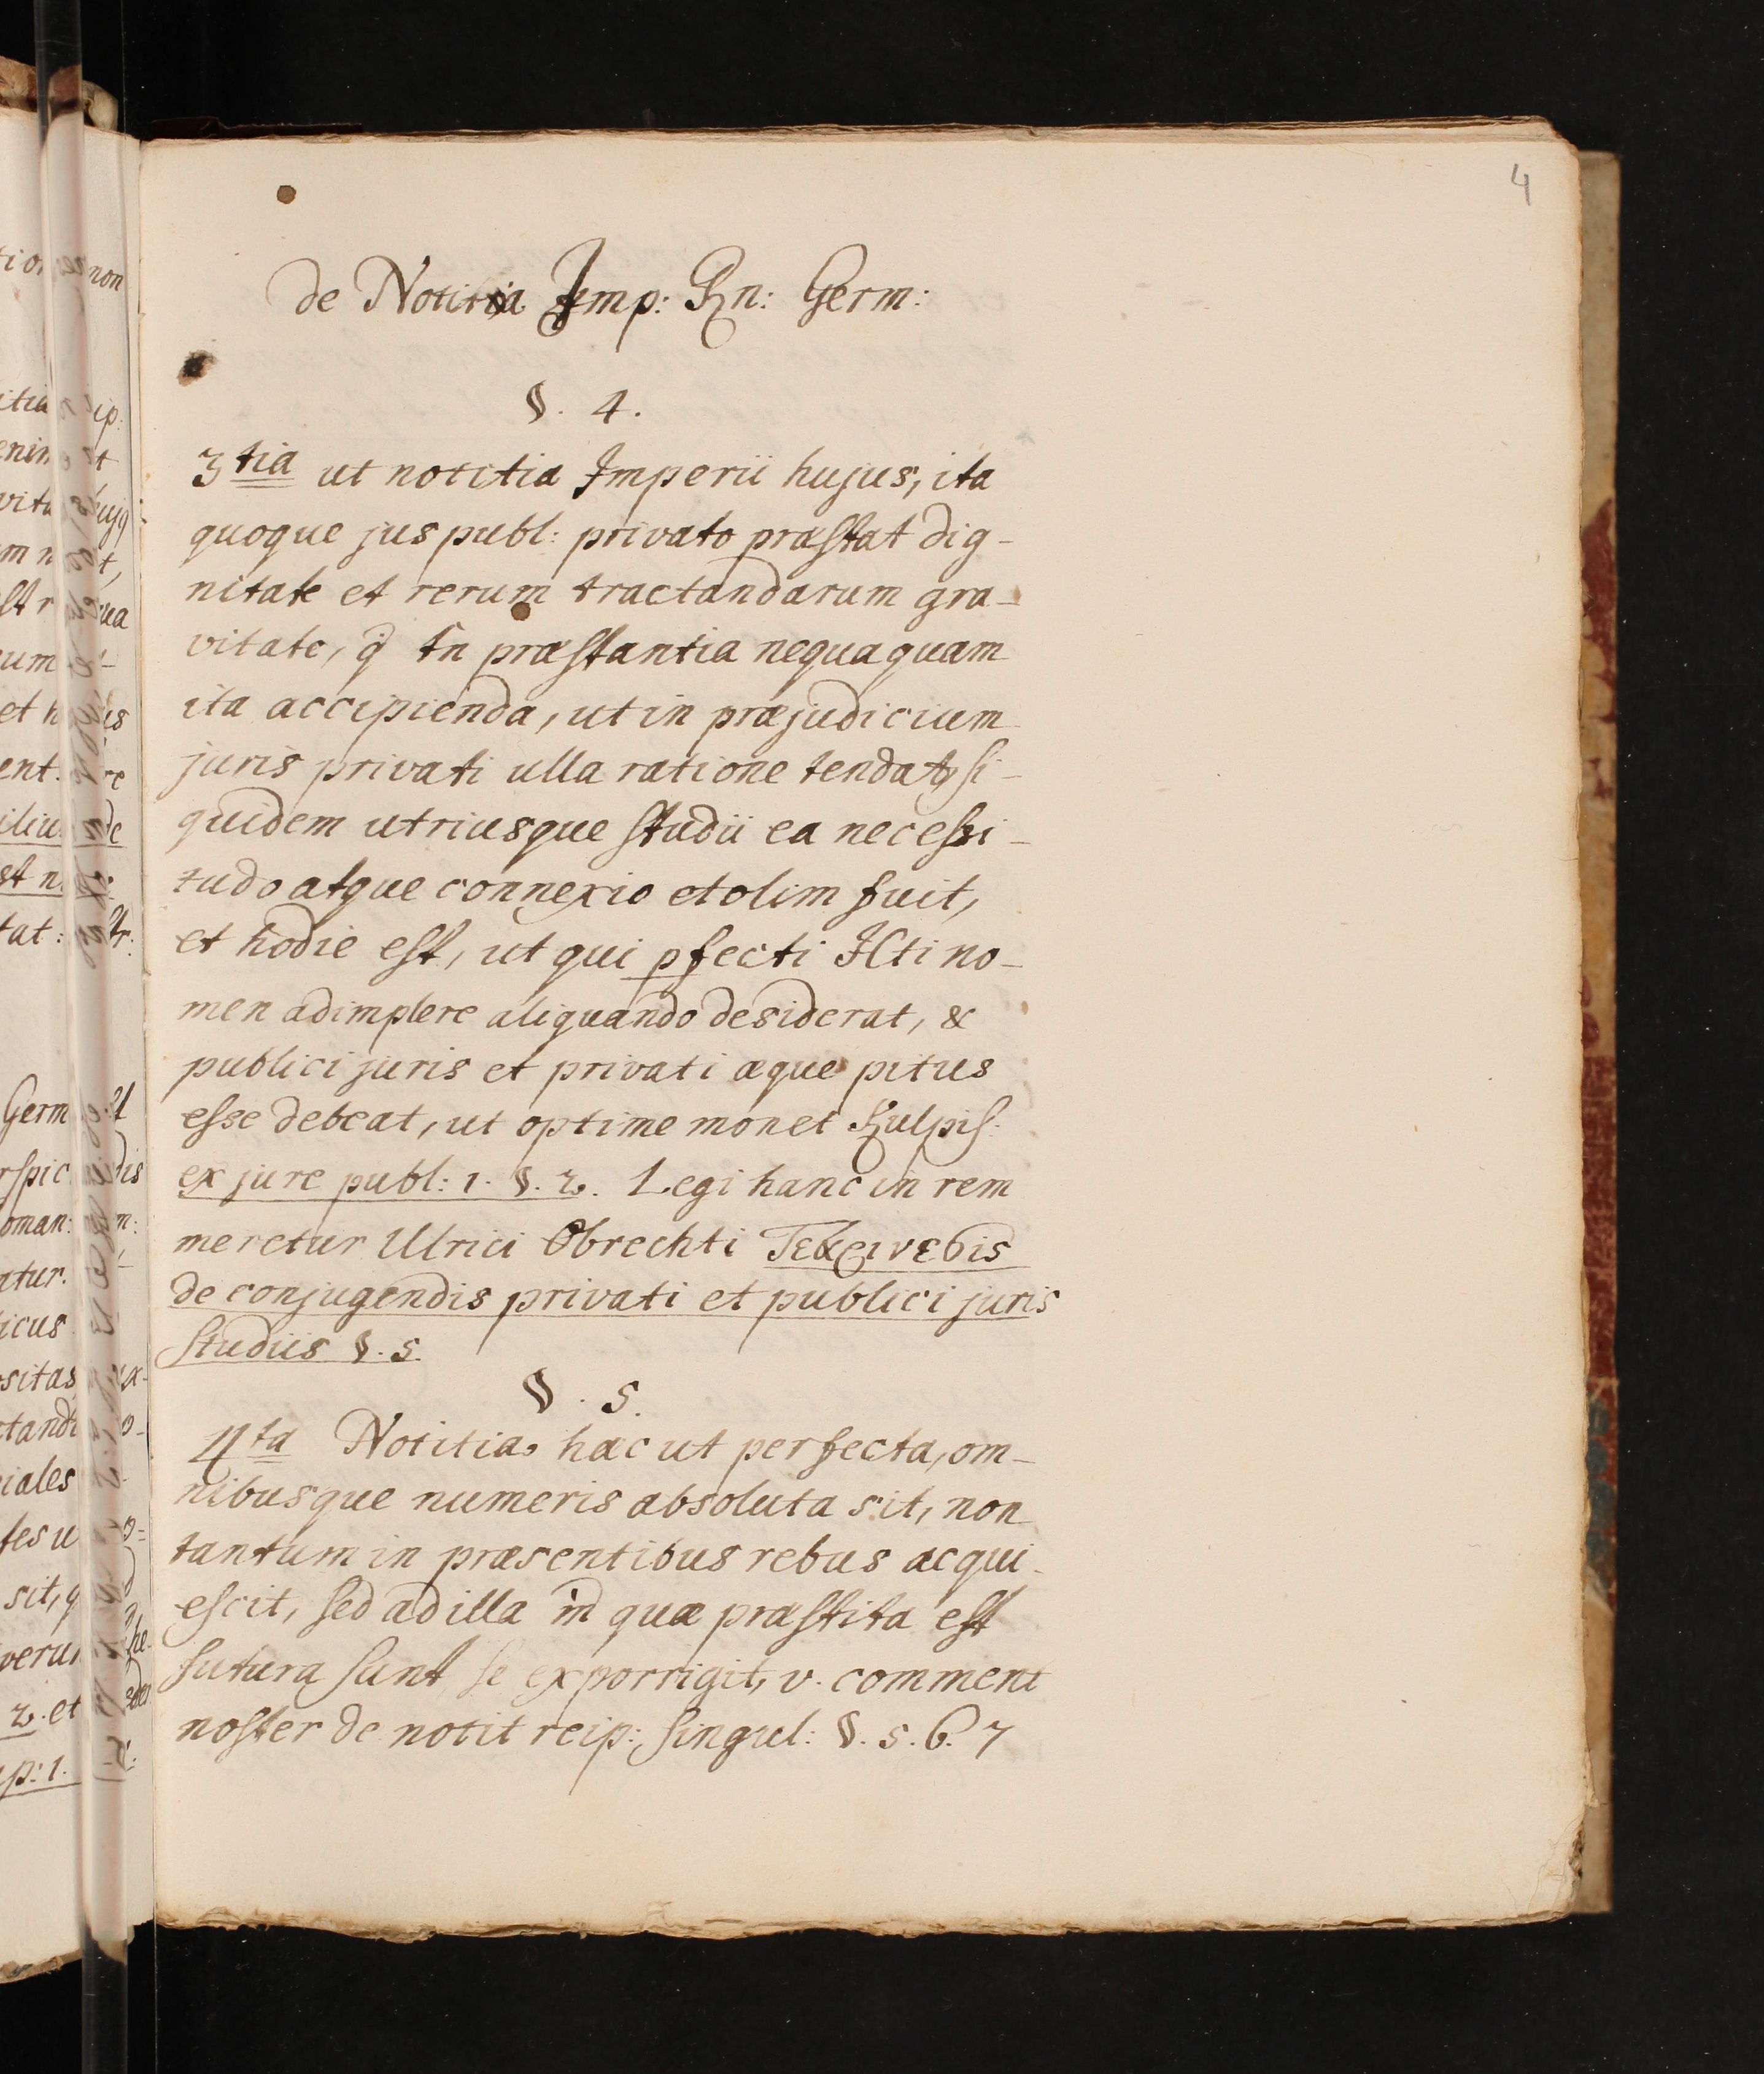 4
de Notitia Imp: Rn: Germ:
§. 4.
3tia ut notitia Imperii hujus, ita
quoque jus publ: privato præstat dig-
nitate et rerum tractandarum gra-
vitate, q̃ tn præstantia nequaquam
ita accipienda, ut in præjudicium
juris privati ulla ratione tendat, si-
quidem utriusque studii ea necessi-
tudo atque connexio et olim fuit,
et hodie est, ut qui pfecti ICti no-
men adimplere aliquando desiderat, &
publici juris et privati æque pitus
esse debeat, ut optime monet Kulpis:
ex jure publ: 1. §. 2. Legi hanc in rem
meretur Ulrici Obrechti
de conjugendis privati et publici juris
studiis §. 5.
§. 5.
4ta Notitia hæc ut perfecta, om-
nibusque numeris absoluta sit, non
tantum in præsentibus rebus acqui-
escit, sed ad illa in quæ præstita est
futura sunt se exporrigit, v. comment
noster de notit reip: singul: §. 5. 6. 7